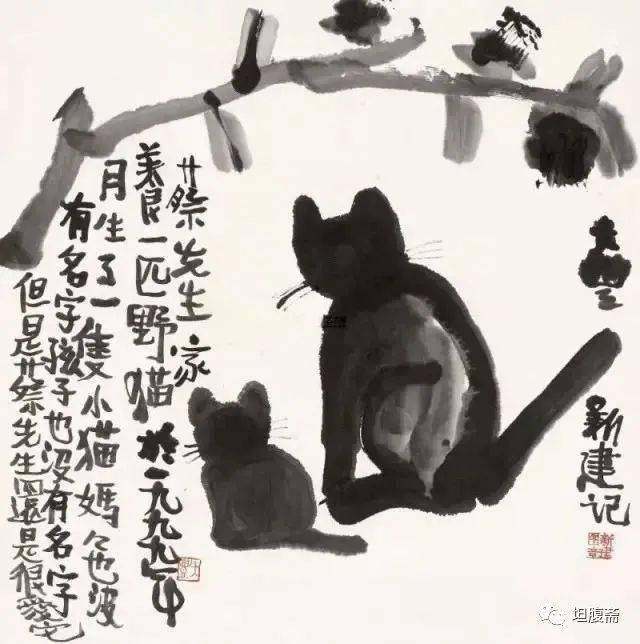 大豐
新建记
蔡先生家
養一匹野猫於一九九九年中
月生了一隻小猫媽々也没
有名字孩子也没有名字
但是蔡先生還是很愛它
坦腹斋